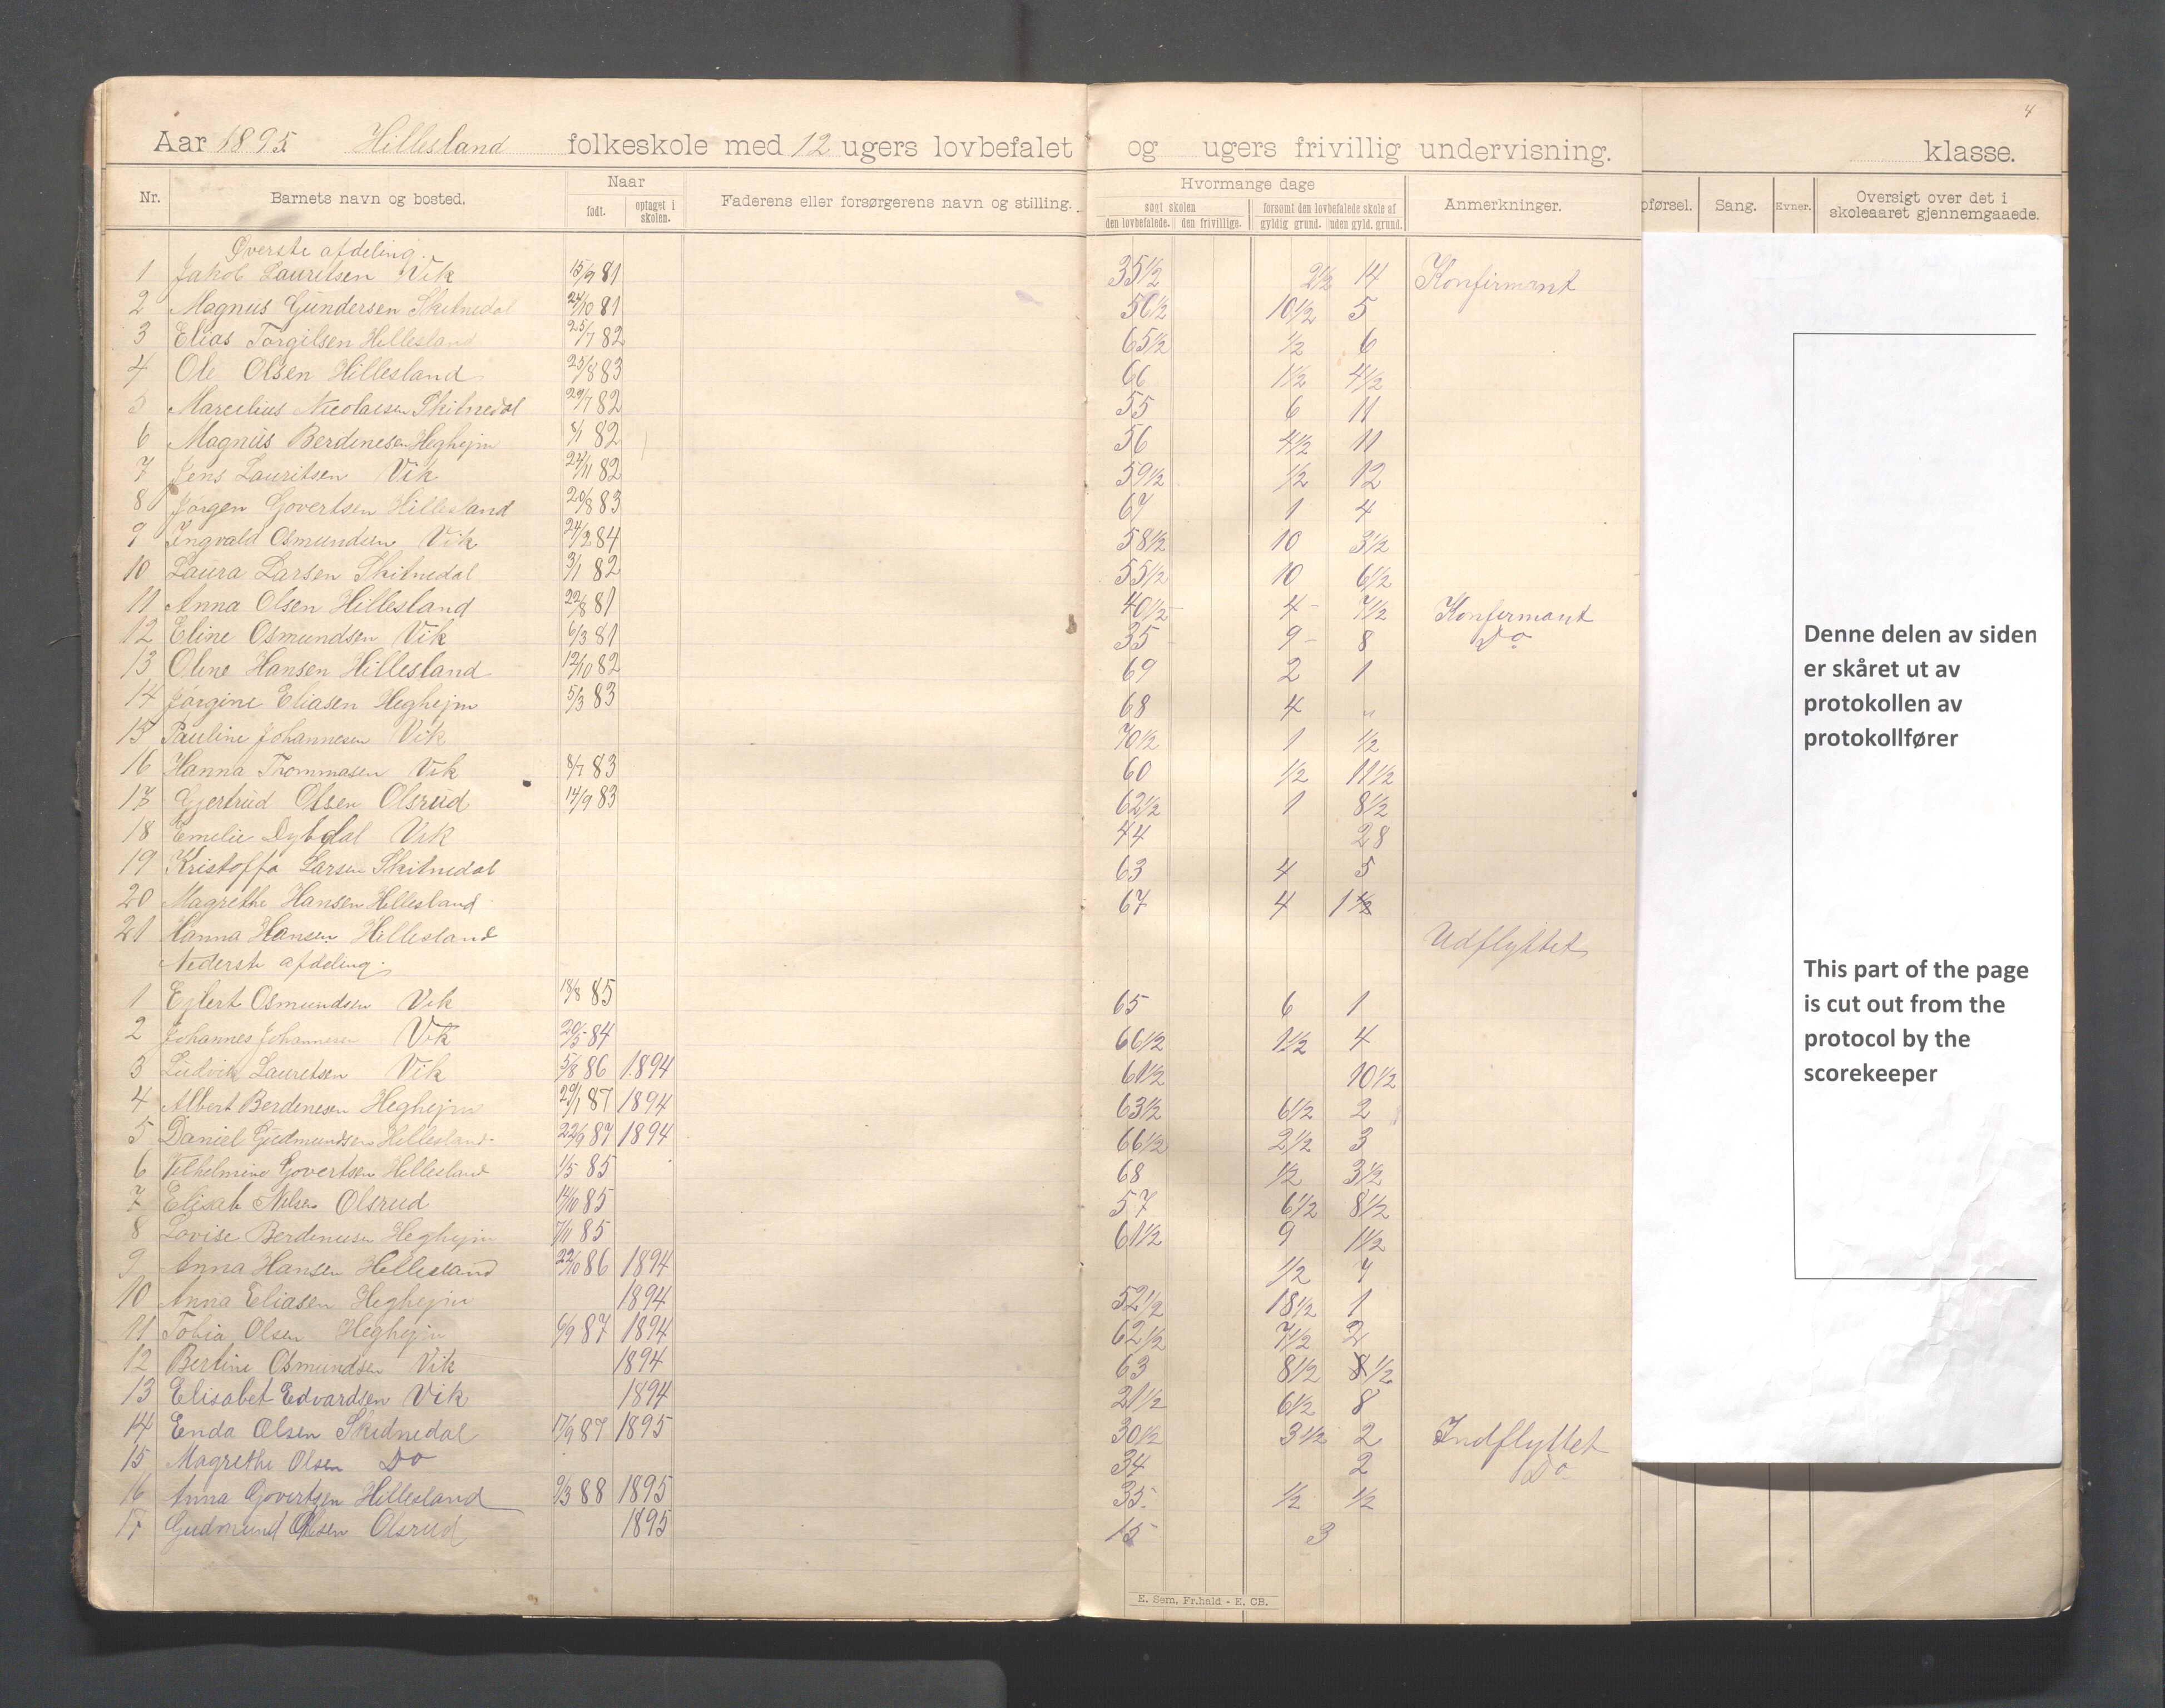 4
Aar 1895 Hillesland folkeskole med 12 ugers lovbefalet og ugers frivillig undervisning. klasse.
Nr. Barnets navn og bosted. Naar født. optaget i skolen. Faderens eller forsørgerens navn og stilling. Hvormange dage søgt skolen den lovbefalede. den frivillige. forsømt den lovbefalede skole af gyldig grund. uden gyld. grund. Anmerkninger. pførsel. Sang. Evner. Oversigt over det i skoleaaret gjennemgaaede.
Øverste afdeling.
1 Jakob Lauritsen Vik 15/9 81 35 1/2 2 1/2 14 Konfirmant
2 Magnus Gundersen Skitnedal 24/10 81 56 1/2 10 1/2 5
3 Elias Torgilsen Hillesland 25/7 82 65 1/2 1/2 6
4 Ole Olsen Hillesland 25/8 83 66 1 1/2 4 1/2
5 Marcelius Nicolaisen Skitnedal 29/7 82 55 6 11
6 Magnus Berdinesen Heghejm 8/1 82 56 4 1/2 11
7 Jens Lauritsen Vik 24/11 82 59 1/2 1/2 12
8 Jørgen Govertsen Hillesland 20/8 83 67 1 4
9 Ingvald Osmundsen Vik 24/2 84 58 1/2 10 3 1/2
10 Laura Larsen Skitnedal 3/1 82 55 1/2 10 6 1/2
11 Anna Olsen Hillesland 22/8 81 40 1/2 4 7 1/2 Konfirmant
12 Eline Osmundsen Vik 6/3 81 35 9 8 Do
13 Oline Hansen Hillesland 12/10 82 69 2 1
14 Jørgine Eliasen Heghejm 5/3 83 68 4 "
15 Pauline Johannesen Vik 70 1/2 1 1/2
16 Hanna Trommasen Vik 8/7 83 60 1/2 11 1/2
17 Gjertrud Olsen Olsrud 14/9 83 62 1/2 1 8 1/2
18 Emelie Dybdal Vik 44 28
19 Kristoffa Larsen Skitnedal 63 4 5
20 Magrethe Hansen Hillesland 67 4 1 1/2
21 Hanna Hansen Hillesland Udflyttet
Nederste afdeling.
1 Ejlert Osmundsen Vik 18/8 85 65 6 1
2 Johannes Johannesen Vik 20/5 84 66 1/2 1 1/2 4
3 Ludvik Lauritsen Vik 5/8 86 1894 61 1/2 10 1/2
4 Albert Berdinesen Heghejm 29/1 87 1894 63 1/2 6 1/2 2
5 Daniel Gudmundsen Hillesland 22/9 87 1894 66 1/2 2 1/2 3
6 Vilhelmine Govertsen Hillesland 1/5 85 68 1/2 3 1/2
7 Elisab Nilsen Olsrud 14/10 85 57 6 1/2 8 1/2
8 Lovise Berdinesen Heghejm 7/11 85 61 1/2 9 1 1/2
9 Anna Hansen Hillesland 22/10 86 1894 1/2 7
10 Anna Eliasen Heghejm 1894 52 1/2 18 1/2 1
11 Tobia Olsen Heghejm 6/9 87 1894 62 1/2 7 1/2 2
12 Bertine Osmundsen Vik 1894 63 8 1/2 8 1/2
13 Elisabet Edvardsen Vik 1894 21 1/2 6 1/2 8
14 Enda Olsen Skidnedal 17/9 87 1895 30 1/2 3 1/2 2 Indflyttet
15 Magrethe Olsen Do 34 2 Do
16 Anna Govertsen Hillesland 9/3 88 1895 35 1/2 1/2
17 Gudmund Olsen Olsrud 1895 15 3
E. Sem, Fr.hald - E. CB.
Denne delen av siden
er skåret ut av
protokollen av
protokollfører
This part of the page
is cut out from the
protocol by the
scorekeeper